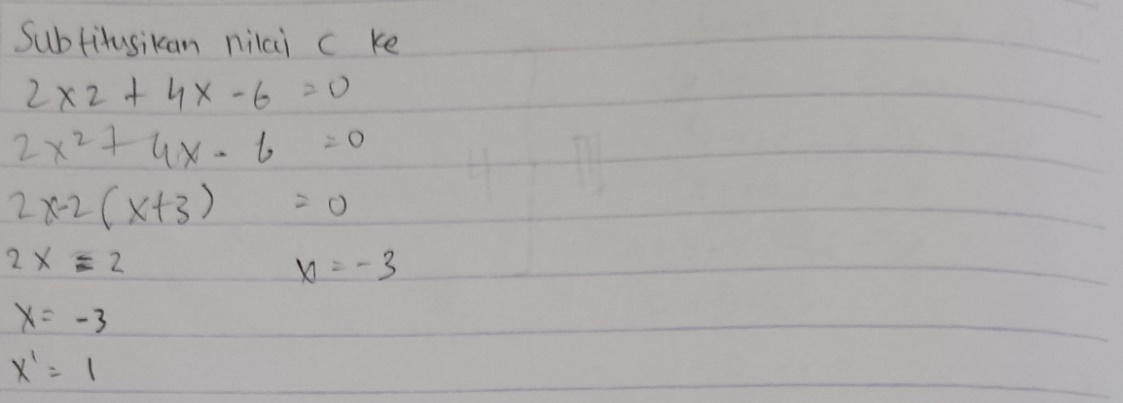 Subtitusikan nilai c ke
2x2 + 4x - 6 = 0
2x² + 4x - 6 = 0
2x-2 (x+3) = 0
2x = 2 x = -3
x = -3
x' = 1